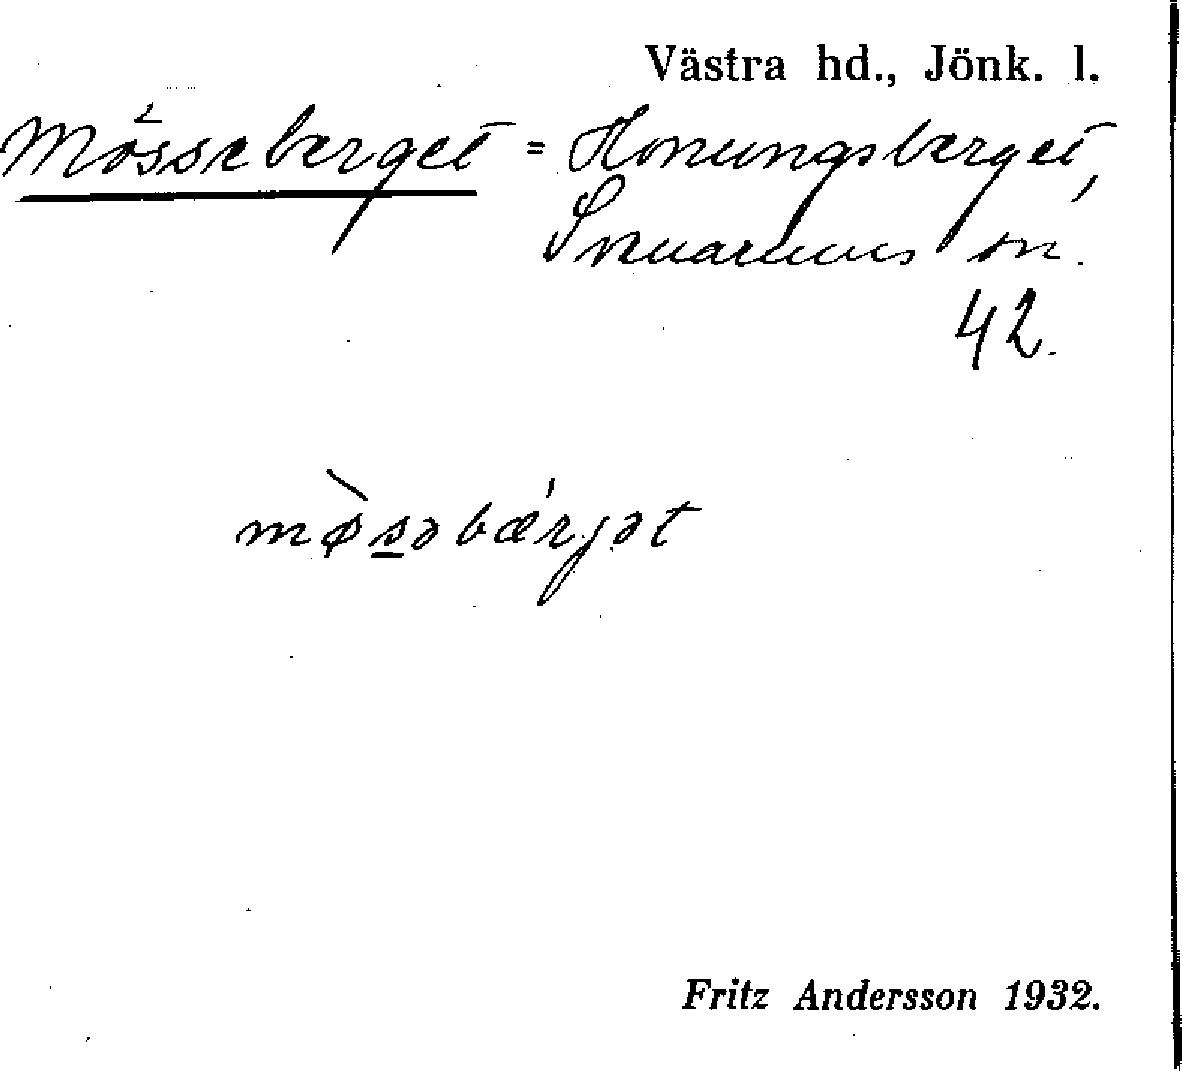 Västra hd., Jönk. l.
Mösseberget = Honungsberget,
Svenarums sn.
42.
mø̀s̲əbǽrjət
Fritz Andersson 1932.